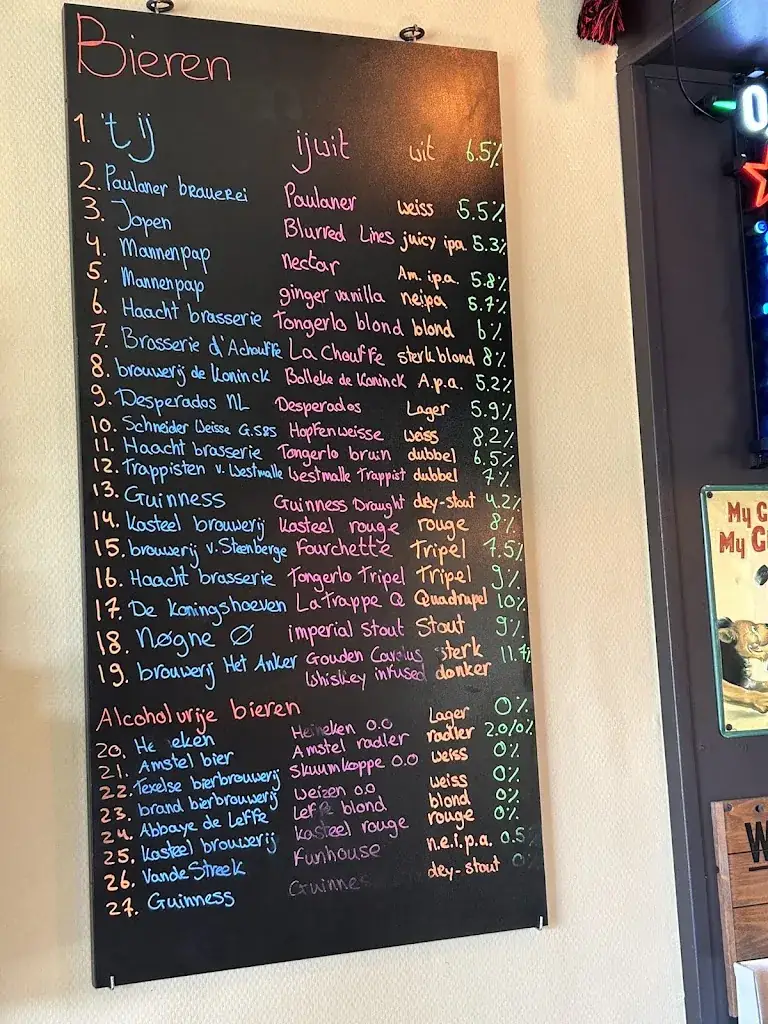 Bieren
1. 't ij ijwit wit 6.5%
2. Paulaner brauerei Paulaner weiss 5.5%
3. Jopen Blurred Lines juicy ipa 5.3%
4. Mannenpap nectar Am. ipa. 5.8%
5. Mannenpap ginger vanilla neipa 5.7%
6. Haacht brasserie Tongerlo blond blond 6%
7. Brasserie d'Achouffe La Chouffe sterk blond 8%
8. brouwerij de Koninck Bolleke de Koninck A.p.a. 5.2%
9. Desperados NL Desperados Lager 5.9%
10. Schneider Weisse G.S&S Hopfenweisse weiss 8.2%
11. Haacht brasserie Tongerlo bruin dubbel 6.5%
12. Trappisten v. Westmalle Westmalle Trappist dubbel 7%
13. Guinness Guinness Draught dry-stout 4.2%
14. Kasteel brouwerij Kasteel rouge rouge 8%
15. brouwerij v. Steenberge Fourchette Tripel 7.5%
16. Haacht brasserie Tongerlo Tripel Tripel 9%
17. De Koningshoeven La Trappe Q Quadrupel 10%
18. Nøgne Ø imperial stout Stout 9%
19. brouwerij Het Anker Gouden Carolus sterk 11.7%
Whiskey infused donker
Alcoholvrije bieren
20. He eken Heineken 0.0 Lager 0%
21. Amstel bier Amstel radler radler 2.0/0%
22. Texelse bierbrouwerij Skuumkoppe 0.0 weiss 0%
23. brand bierbrouwerij Weizen 0.0 weiss 0%
24. Abbaye de Leffe Leffe blond blond 0%
25. Kasteel brouwerij Kasteel rouge rouge 0%
26. VandeStreek Funhouse n.e.i.p.a. 0.5%
27. Guinness Guinnes dry-stout 0%
My G
My G
W